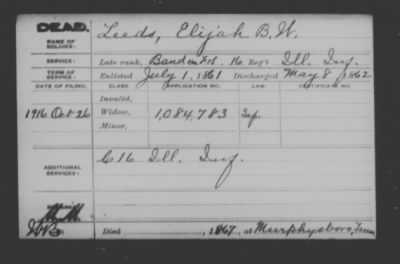 DEAD.
NAME OF SOLDIER: Leeds, Elijah B. W.
SERVICE: Late rank, Band 16 Reg't Ill. Inf.
TERM OF SERVICE: Enlisted July 1, 1861 Discharged May 8, 1862
DATE OF FILING. CLASS. APPLICATION NO. LAW. CERTIFICATE NO.
Invalid,
1916 Oct 26 Widow, 1,084,783
Minor,
ADDITIONAL SERVICES: C 16 Ill. Inf.
Died , 1867, at Murphysboro,